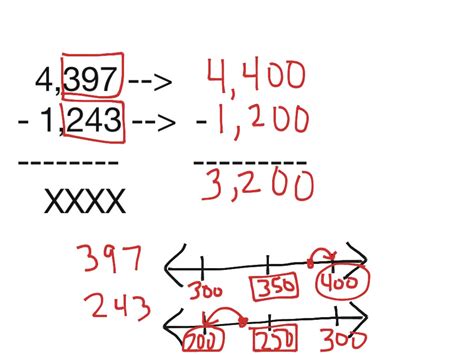 4,397 --> 4,400
- 1,243 --> - 1,200
-------- ---------
XXXX 3,200
397
300 350 400
243
200 250 300